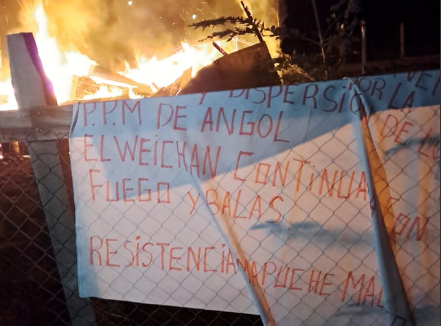 Y DISPERSIÓ POR
P.P.M DE ANGOL
EL WEICHAN CONTINUA CON
FUEGO Y BALAS
RESISTENCIA MAPUCHE MAL